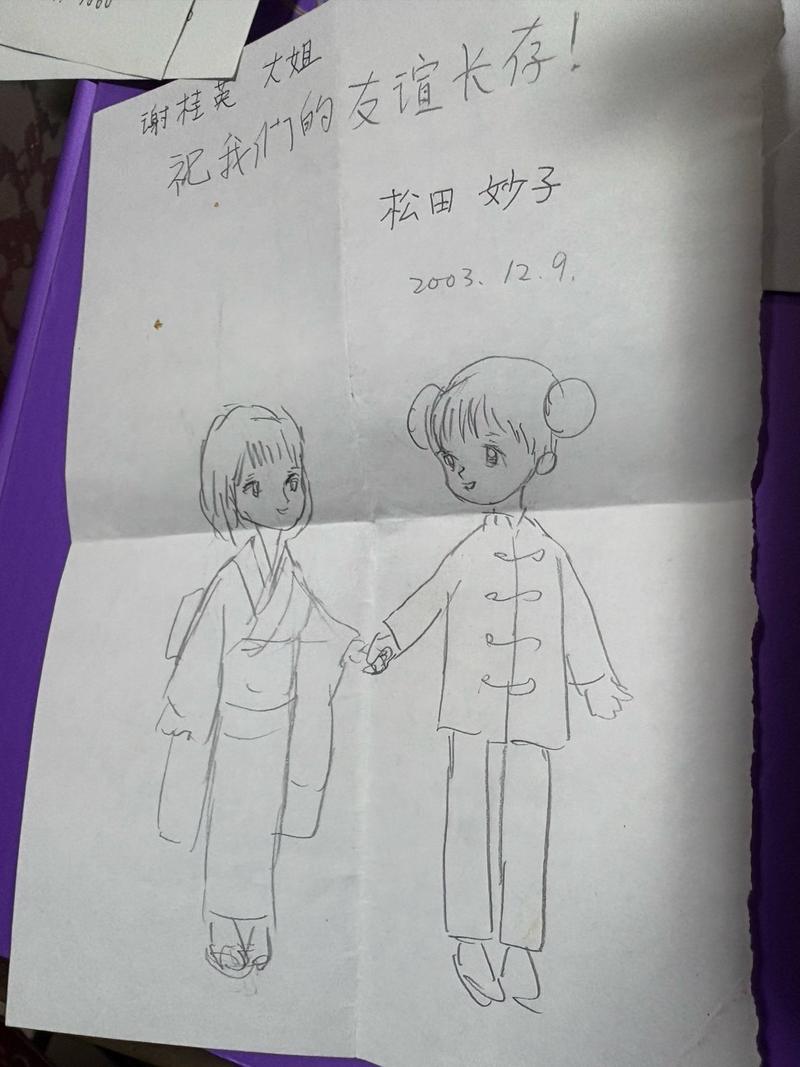 谢桂英 大姐
祝我们的友谊长存!
松田 妙子
2003.12.9.